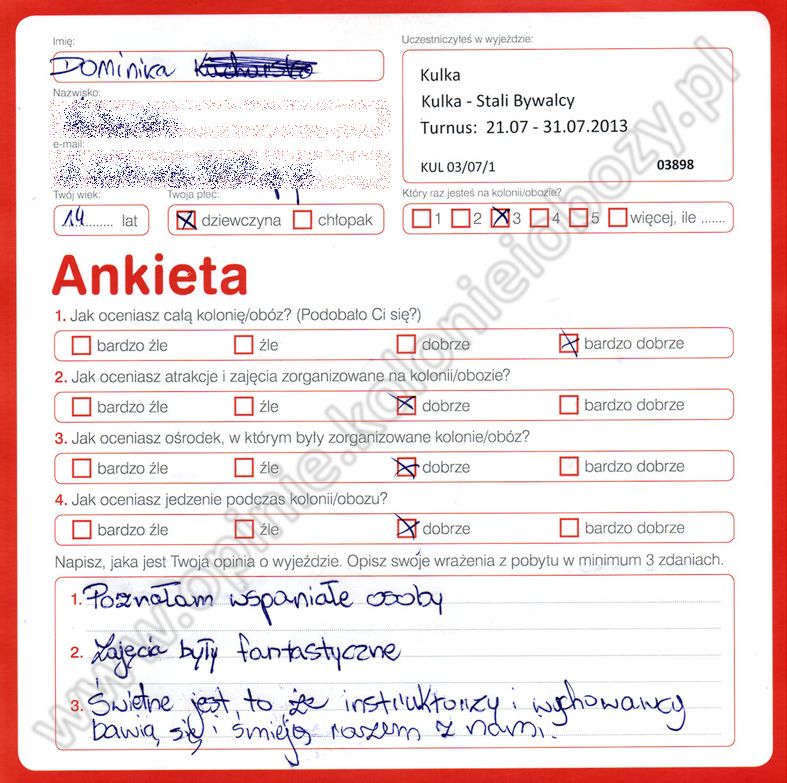 Imię:
Dominika
Uczestniczyłeś w wyjeździe:
Kulka
Kulka - Stali Bywalcy
Turnus: 21.07 - 31.07.2013
KUL 03/07/1 03898
Nazwisko:
e-mail:
Twój wiek:
14 ........ lat
Twoja płeć:
dziewczyna chłopak
Który raz jesteś na kolonii/obozie?
1 2 3 4 5 więcej, ile .......
Ankieta
1. Jak oceniasz całą kolonię/obóz? (Podobało Ci się?)
bardzo źle źle dobrze bardzo dobrze
2. Jak oceniasz atrakcje i zajęcia zorganizowane na kolonii/obozie?
bardzo źle źle dobrze bardzo dobrze
3. Jak oceniasz ośrodek, w którym były zorganizowane kolonie/obóz?
bardzo źle źle dobrze bardzo dobrze
4. Jak oceniasz jedzenie podczas kolonii/obozu?
bardzo źle źle dobrze bardzo dobrze
Napisz, jaka jest Twoja opinia o wyjeździe. Opisz swoje wrażenia z pobytu w minimum 3 zdaniach.
1. Poznałam wspaniałe osoby
2. Zajęcia były fantastyczne
3. Świetne jest to że instruktorzy i wychowawcy
bawią się i śmieją razem z nami.
www.opinie.kolonieiobozy.pl